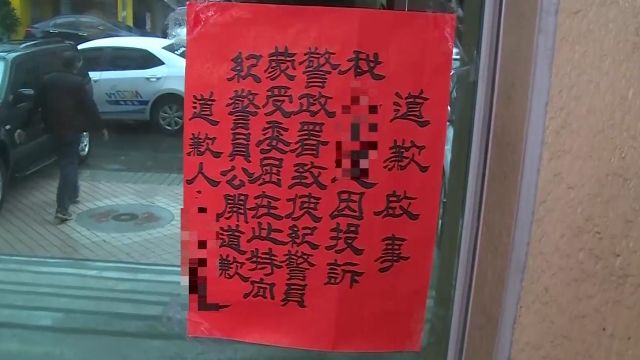 道歉啟事
我因投訴
警政署致使紀警員
蒙受委屈在此特向
紀警員公開道歉
道歉人